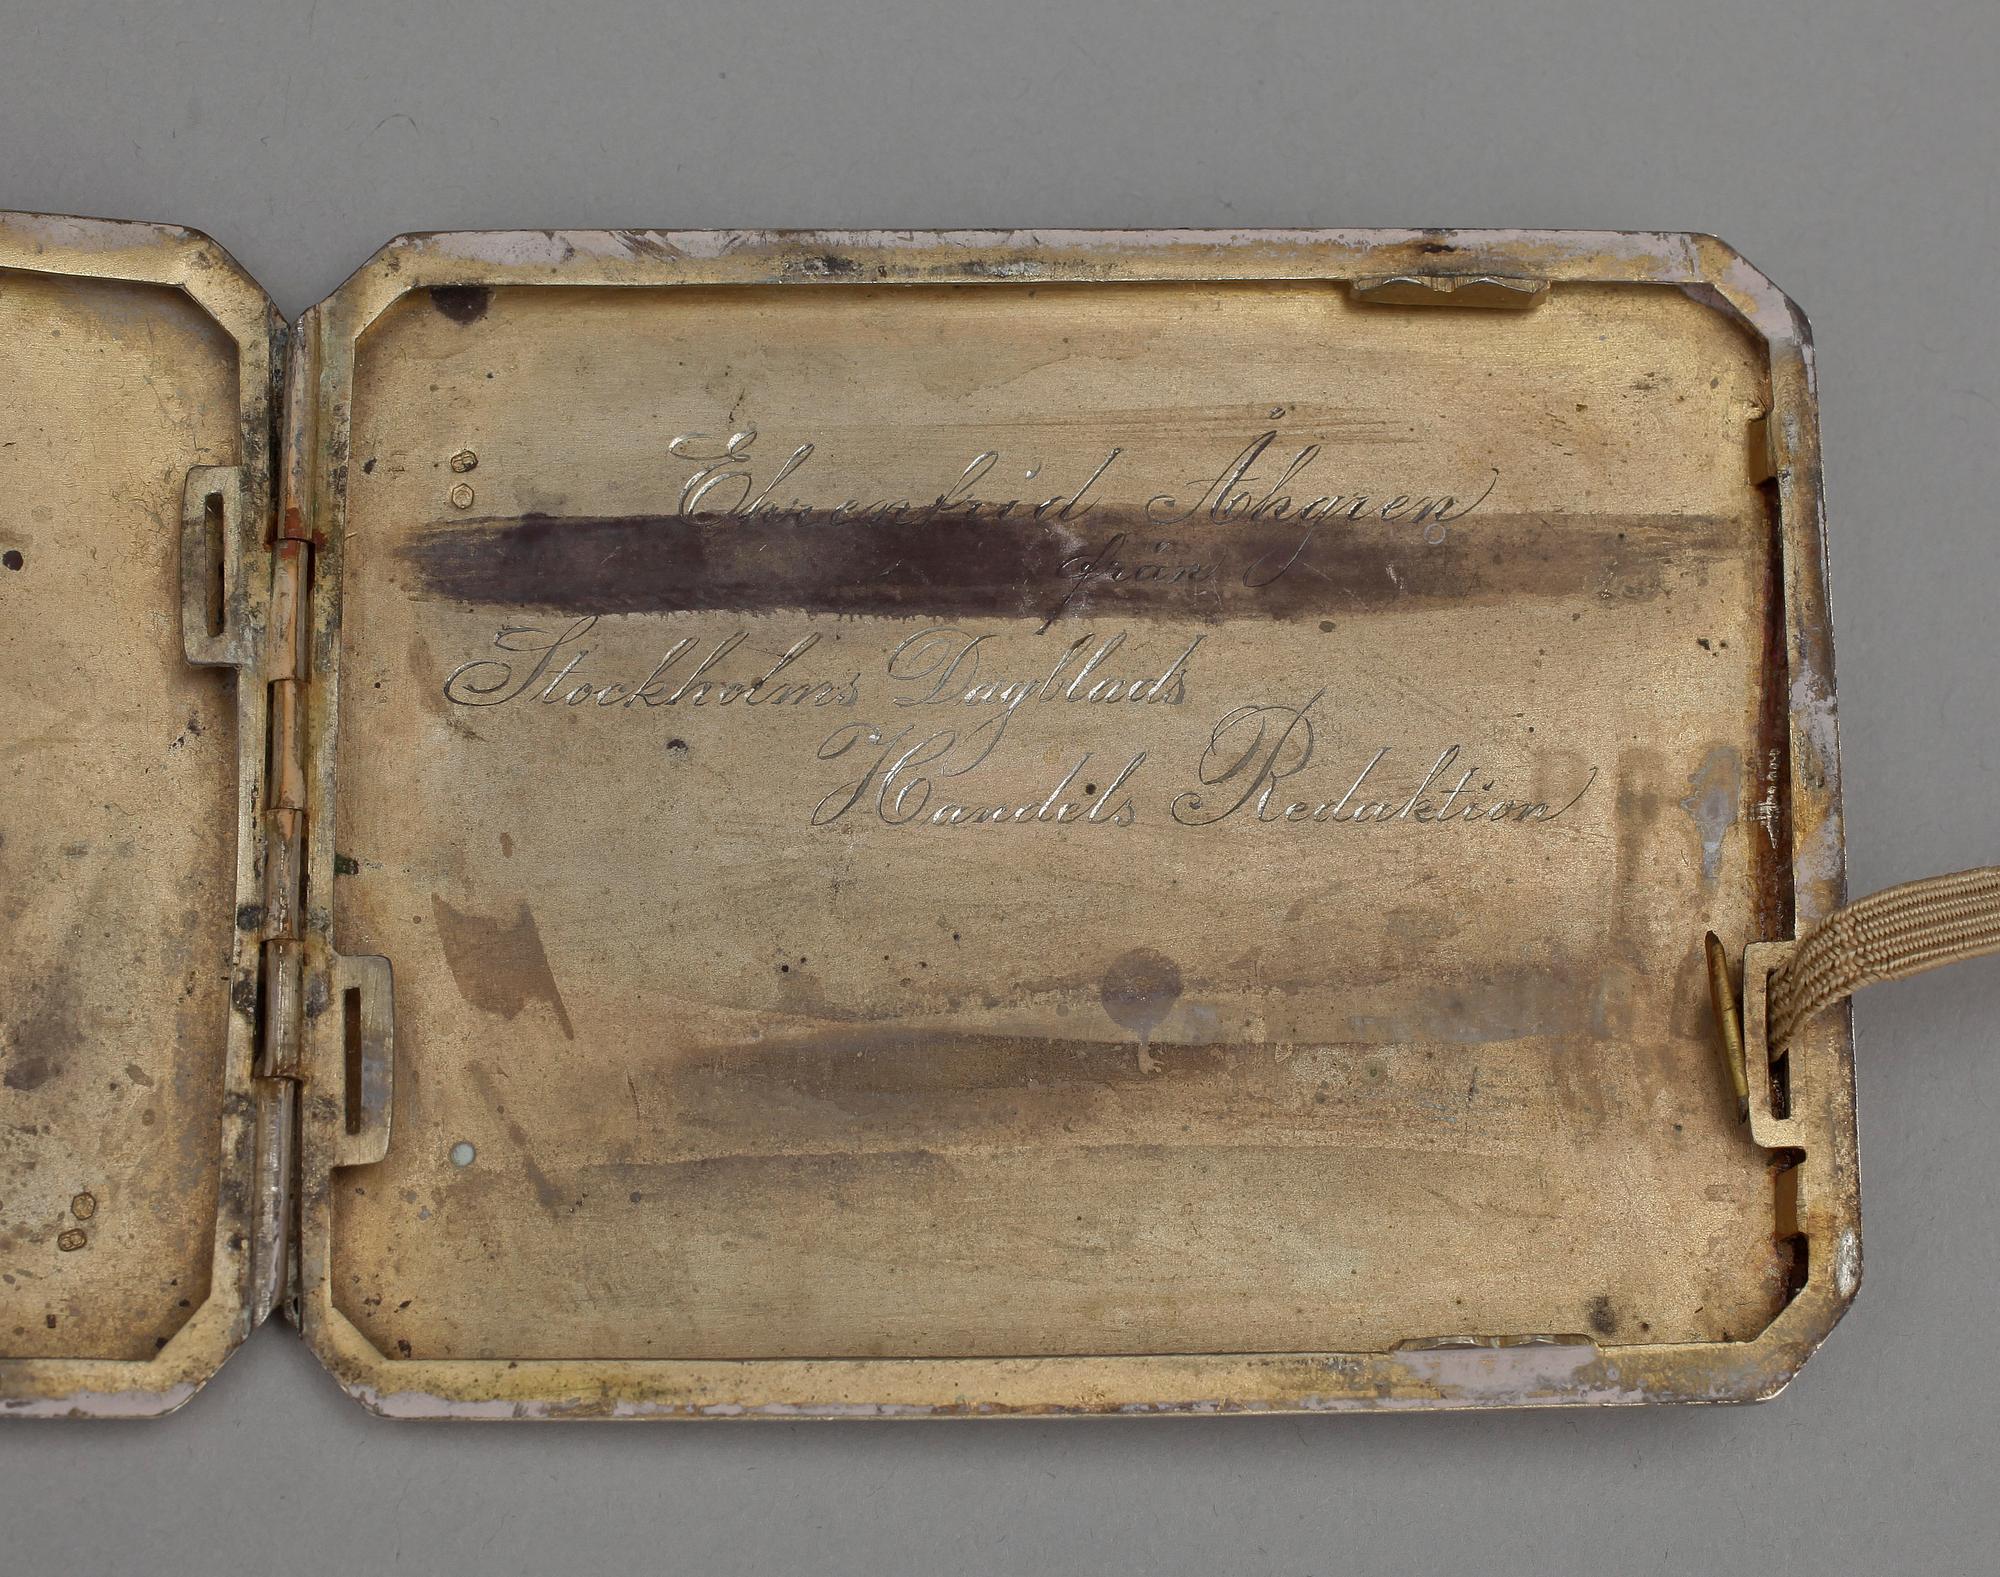 Ehrenfrid Åhgren
från
Stockholms Dagblads
Handels Redaktion